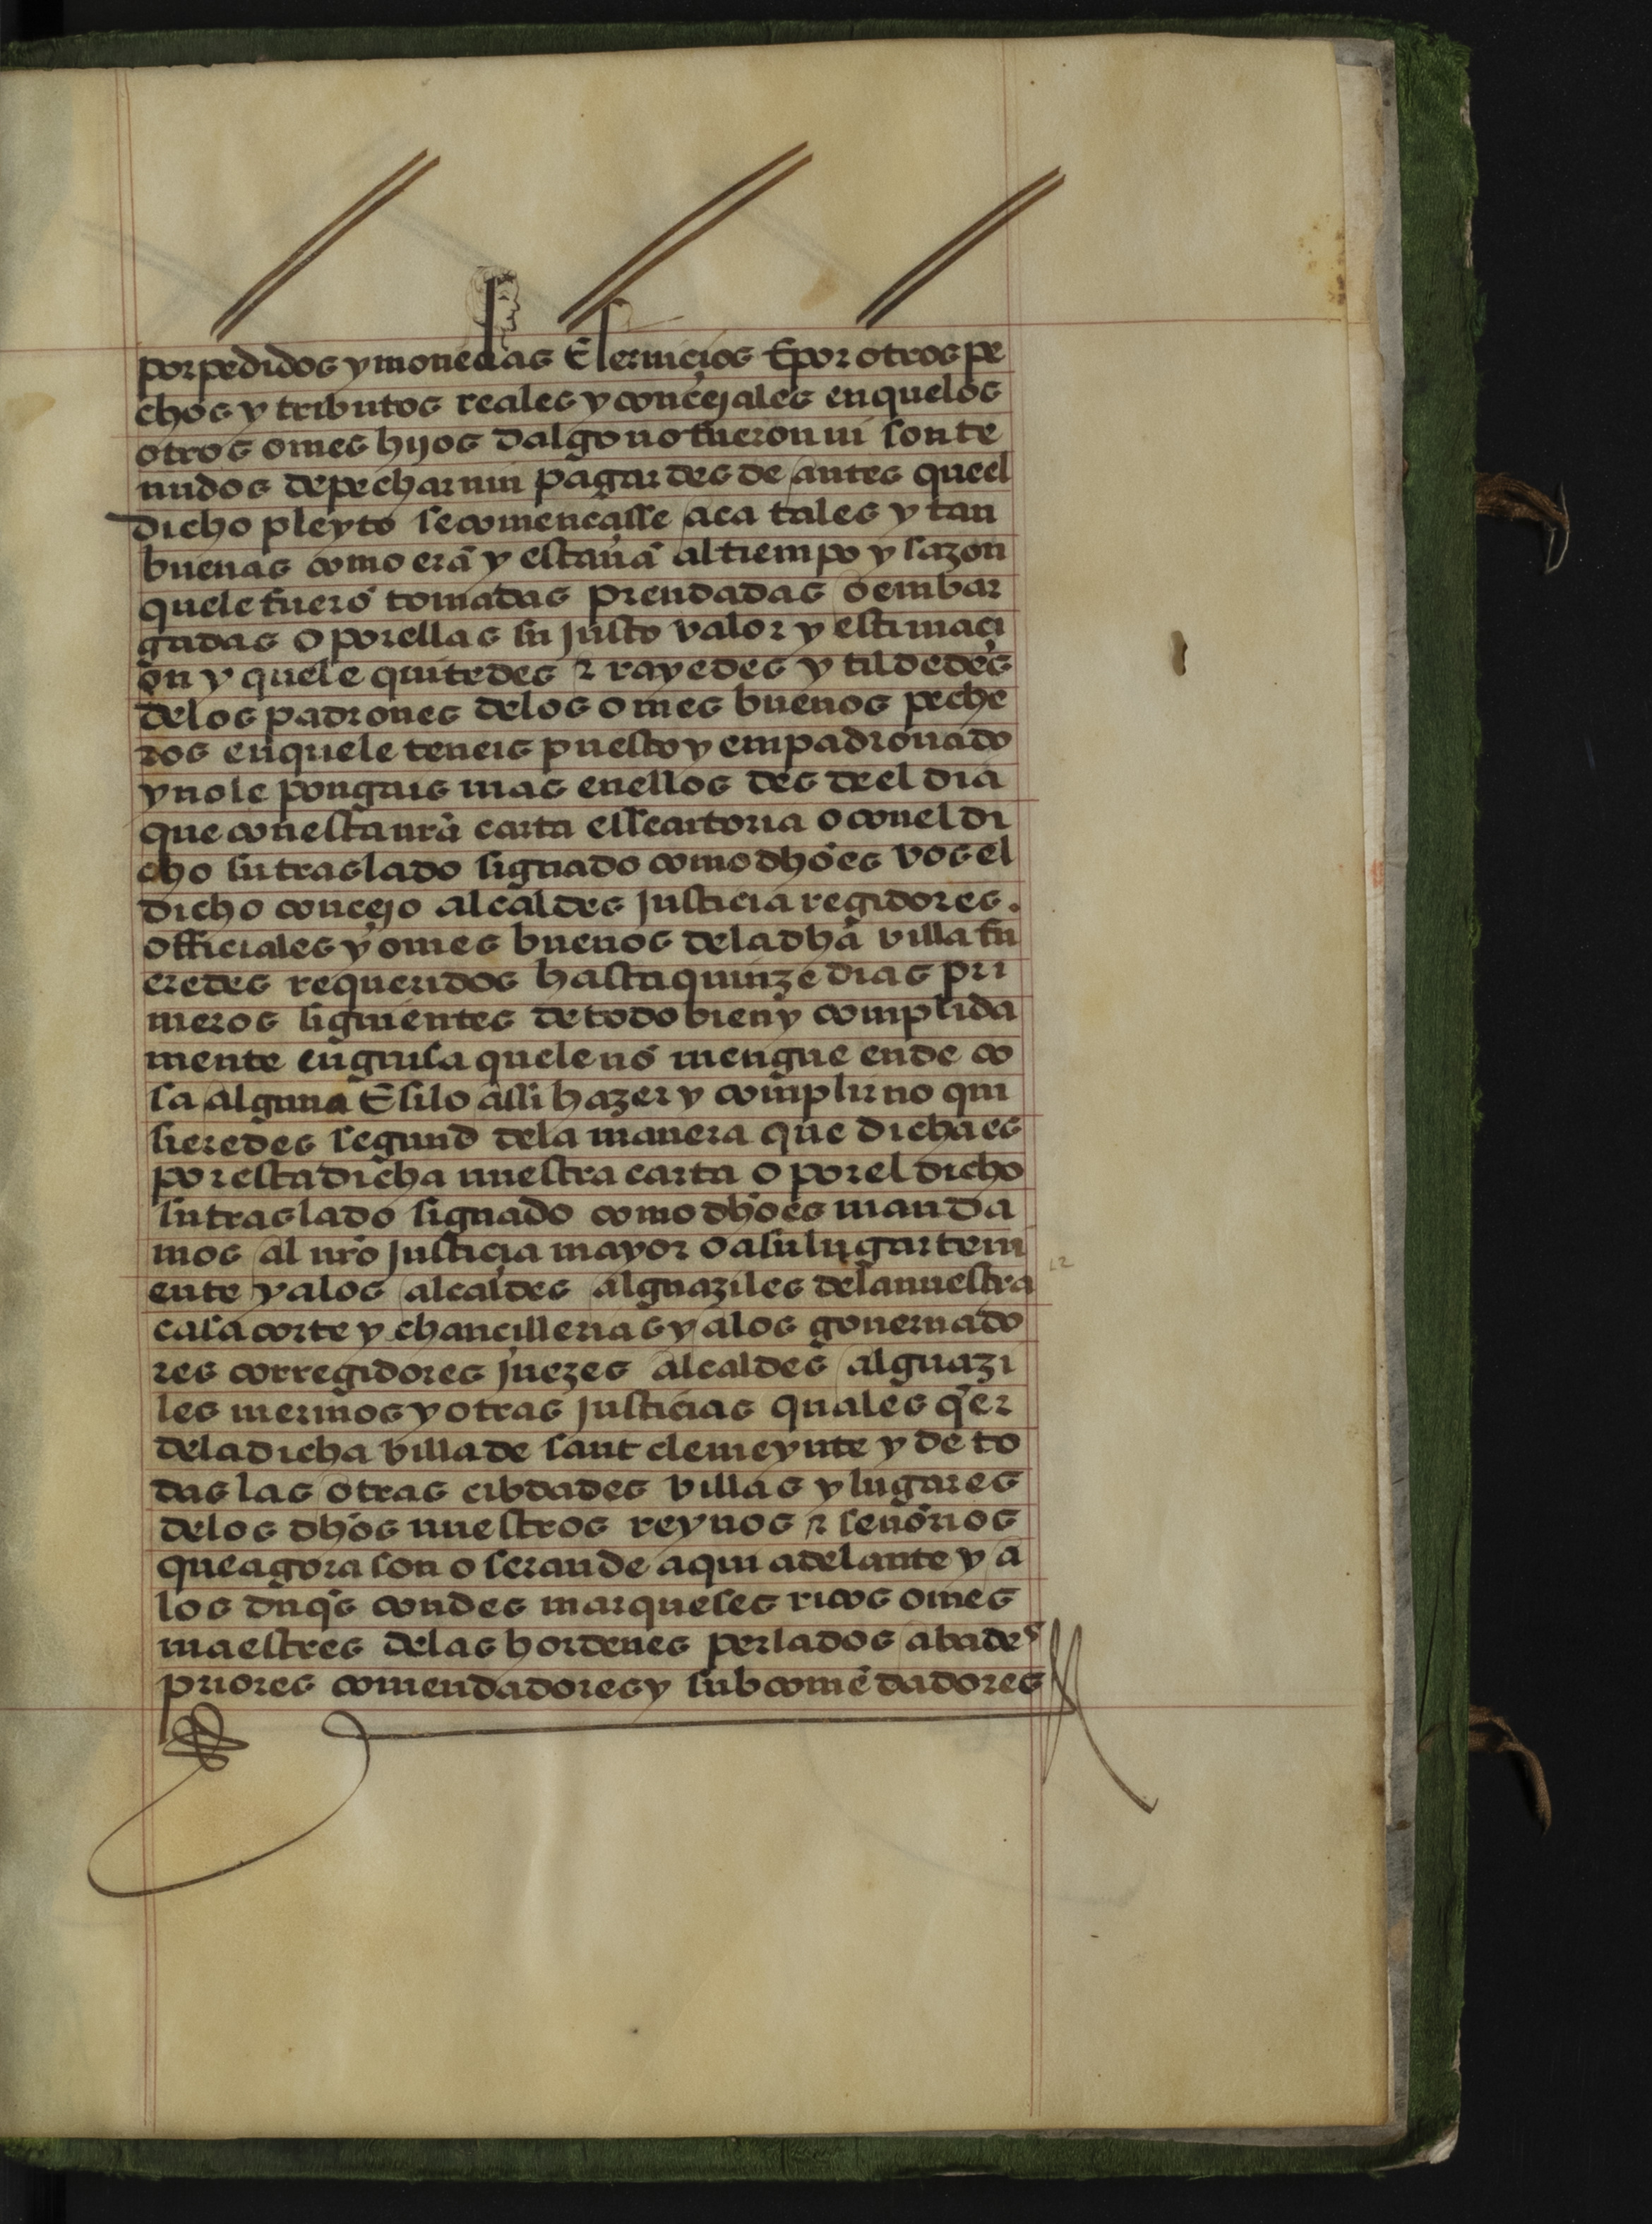 por pedidos y monedas E seruiçios E por otros pe
chos y tributos reales y conçejales en que los
otros omes hijos dalgo no fueron ni son te
nudos de pechar nin pagar des de antes que el
dicho pleyto se comencasse aca tales y tan
buenas como erã y estauã al tiempo y sazon
que le fuerõ tomadas prendadas o embar
gadas o por ellas su justo valor y estimaçi
on y que le quitedes ⁊ rayedes y tildedes
de los padrones de los omes buenos peche
ros en que le teneis puesto y empadronado
y no le pongais mas en ellos des de el dia
que con esta nrã carta essecutoria o con el di
cho su traslado signado como dhõ es vos el
dicho concejo alcaldes justicia regidores.
officiales y omes buenos de la dhã villa fu
eredes requeridos hasta quinze dias pri
meros siguientes de todo bien y complida
mente en guisa que le nõ mengue ende co
sa alguna E si lo assi hazer y complir no qui
sieredes segund de la manera que dicha es
por esta dicha nuestra carta o por el dicho
su traslado signado como dhõ es manda
mos al nrõ justiçia mayor o a su lugar teni
ente y a los alcaldes alguaziles de la nuestra
casa corte y chancillerias y a los gouernado
res corregidores juezes alcaldes alguazi
les merinos y otras justicias quales qer
de la dicha villa de sant clemeynte y de to
das las otras cibdades villas y lugares
de los dhõs nuestros reynos ⁊ señorios
que agora son o seran de aqui adelante y a
los duqs condes marqueses ricos omes
maestres de las hordenes perlados abades
priores comendadores y subcomẽdadores